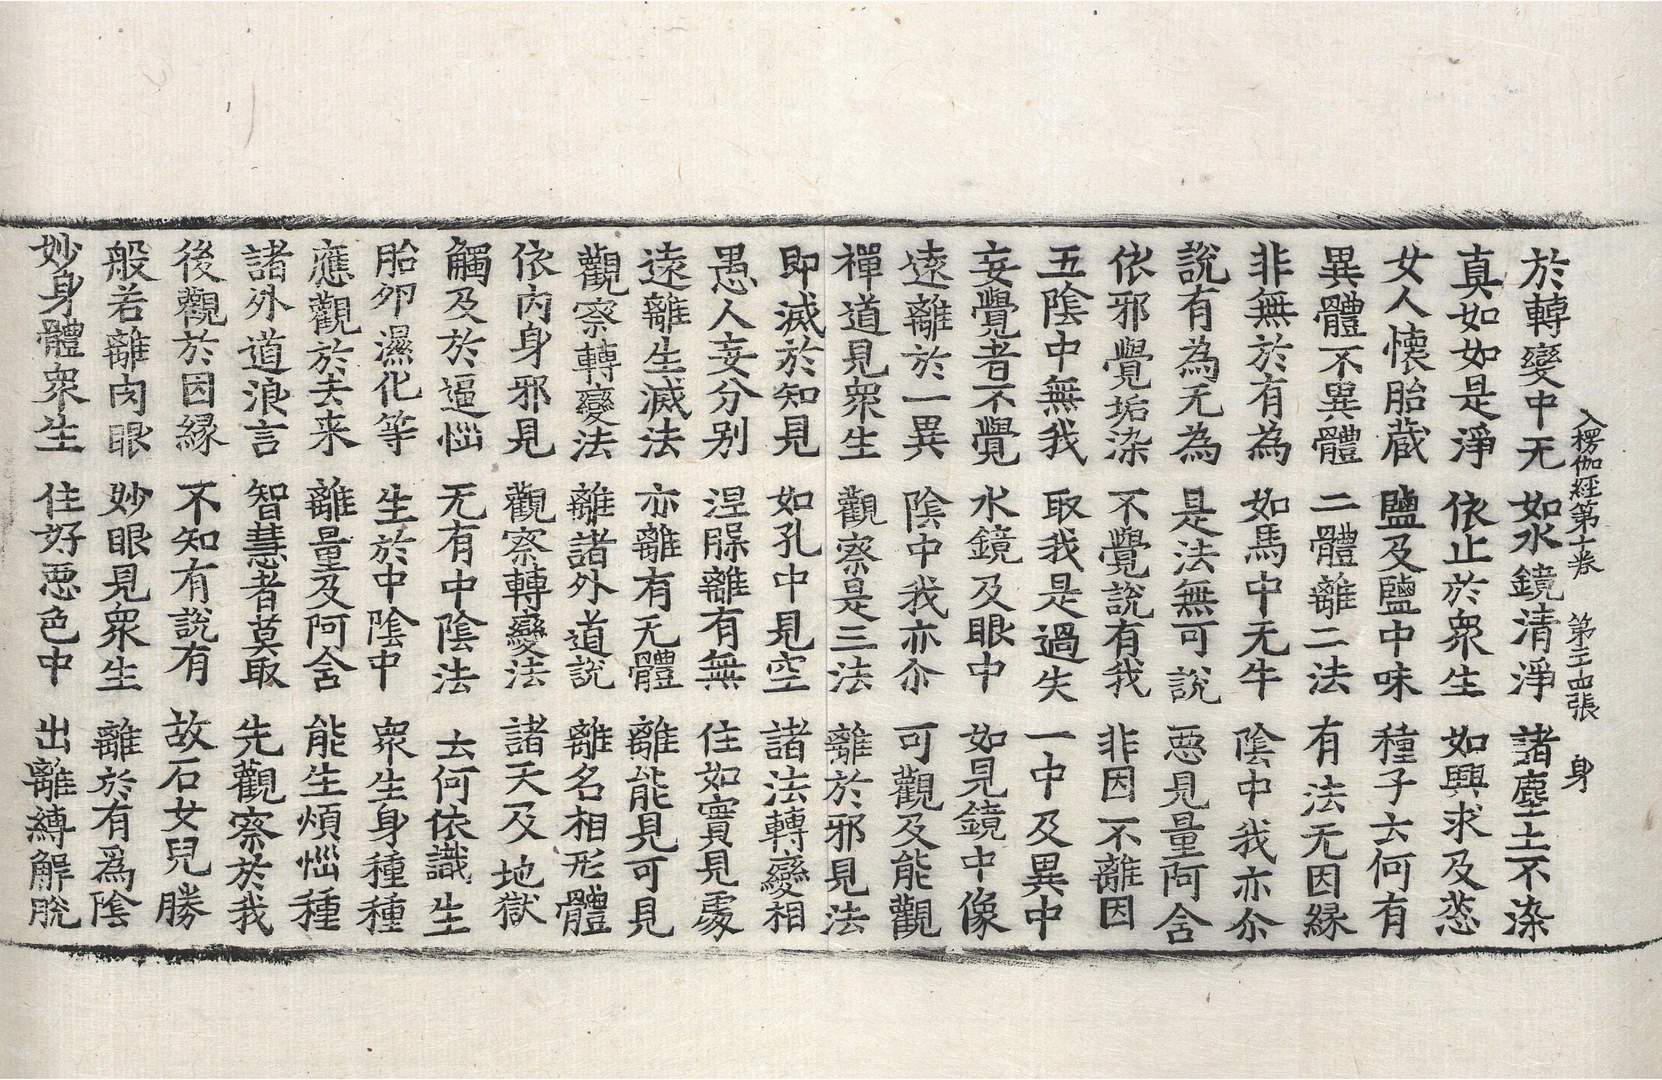 入楞伽經第十卷 第三十四張 身
於轉變中无 如水鏡清淨 諸塵土不染
真如如是淨 依止於衆生 如興求及葱
女人懷胎蔵 鹽及鹽中味 種子云何有
異體不異體 二體離二法 有法无因縁
非無於有為 如馬中无牛 陰中我亦尒
說有為无為 是法無可說 惡見量阿含
依邪覺垢染 不覺說有我 非因不離因
五陰中無我 取我是過失 一中及異中
妄覺者不覺 水鏡及眼中 如見鏡中像
遠離於一異 陰中我亦尒 可觀及能觀
禪道見衆生 觀察是三法 離於邪見法
即滅於知見 如孔中見空 諸法轉變相
愚人妄分別 涅槃離有無 住如實見處
遠離生滅法 亦離有无體 離能見可見
觀察轉變法 離諸外道說 離名相形體
依內身邪見 觀察轉變法 諸天及地獄
觸及於逼惱 无有中陰法 云何依識生
胎卵濕化等 生於中陰中 衆生身種種
應觀於去来 離量及阿含 能生煩惱種
諸外道浪言 智慧者莫取 先觀察於我
後觀於因縁 不知有說有 故石女兒勝
般若離肉眼 妙眼見衆生 離於有爲陰
妙身體衆生 住好惡色中 出離縛解脫